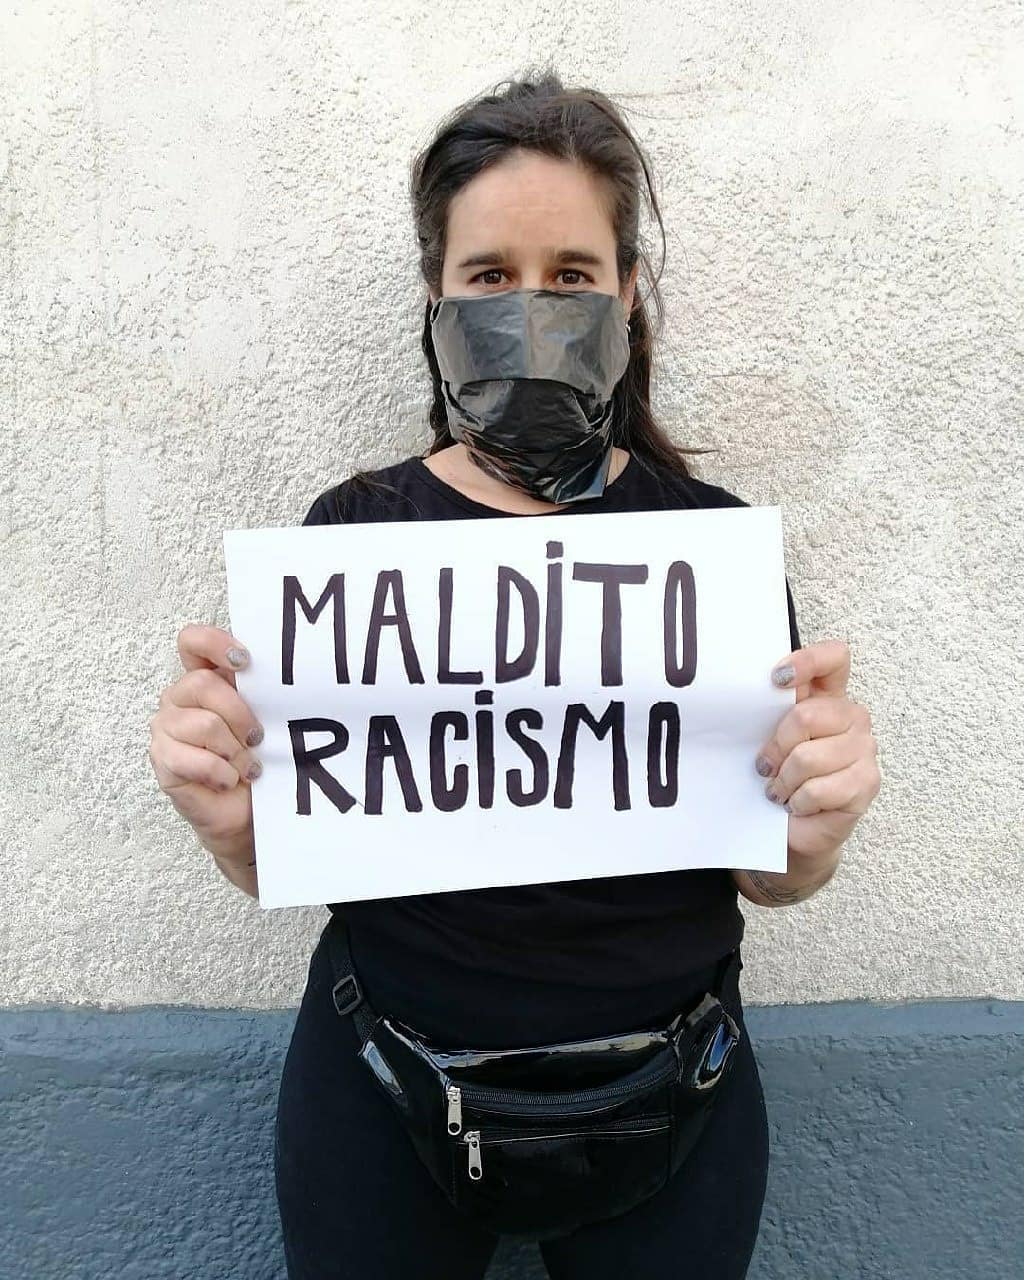 MALDITO
RACISMO